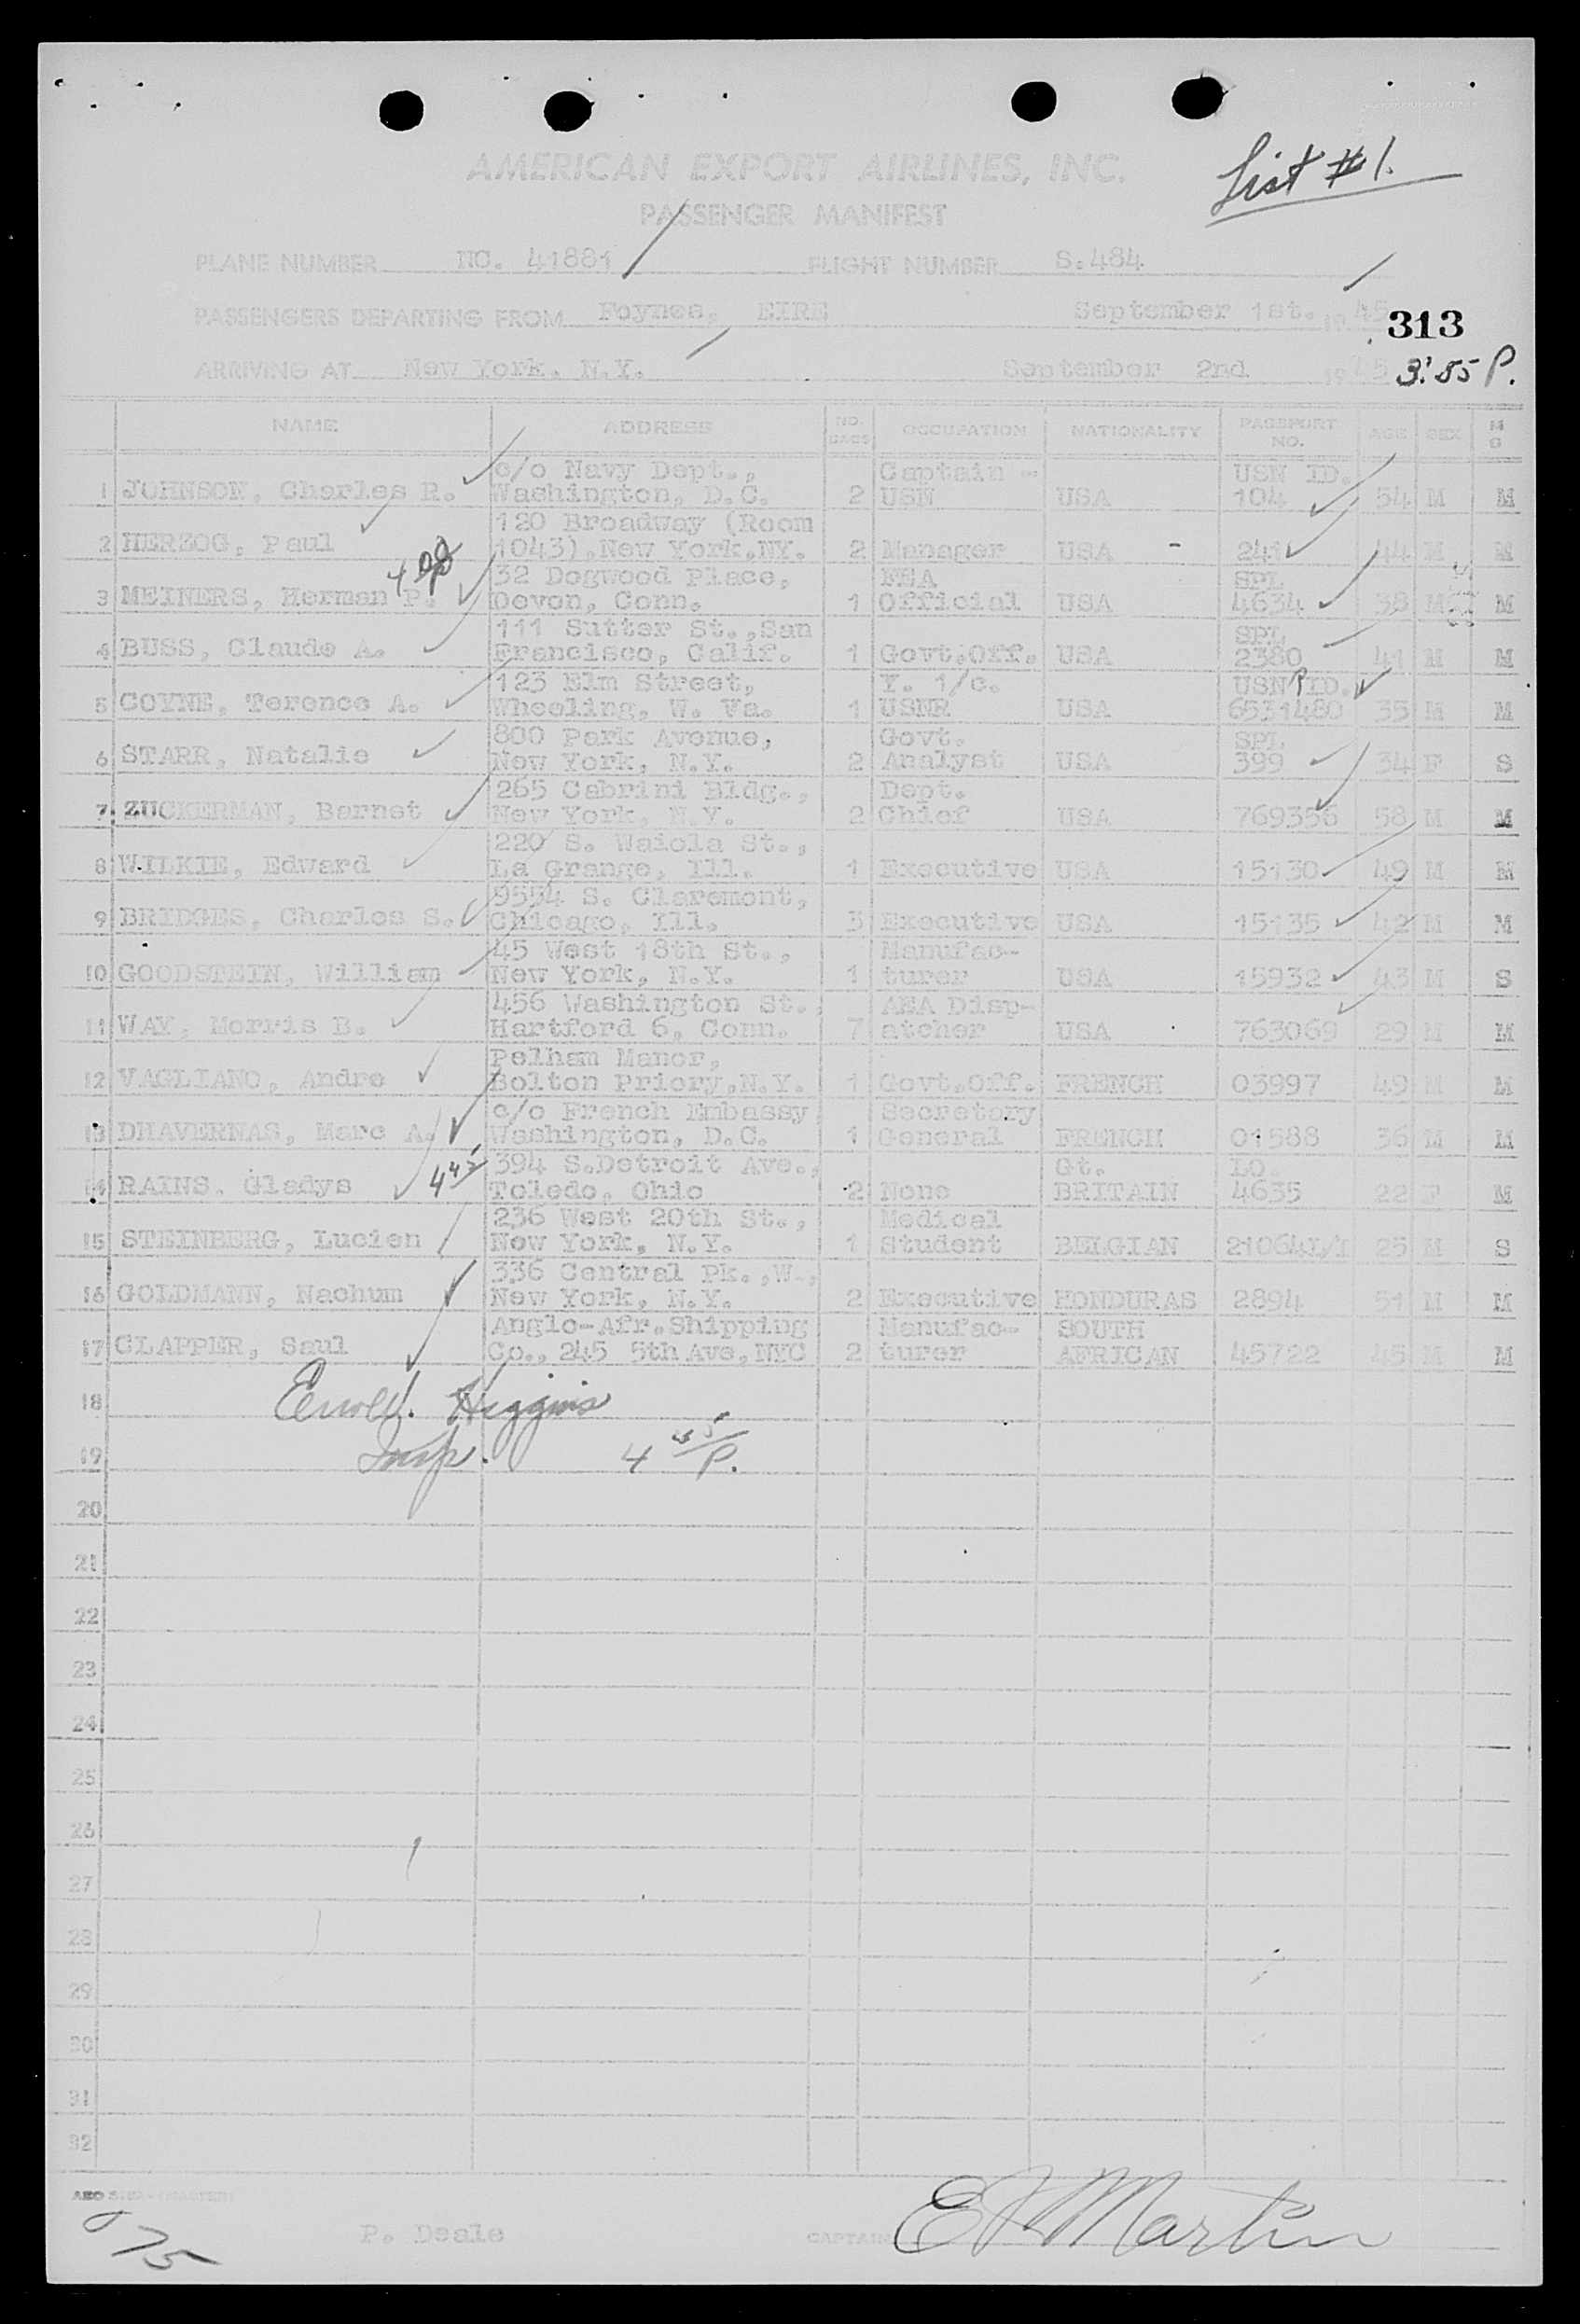 List #1.
AMERICAN EXPORT AIRLINES, INC.
PASSENGER MANIFEST
PLANE NUMBER NC. 41881 FLIGHT NUMBER S.484
PASSENGERS DEPARTING FROM Foynes, EIRE September 1st. 1945
313
ARRIVING AT New York. N.Y. September 2nd 1945 3:55 P.
NAME ADDRESS NO. BAGS OCCUPATION NATIONALITY PASSPORT NO. AGE SEX M S
c/o Navy Dept., Captain - USN ID.
1 JOHNSON, Charles R. Washington, D.C. 2 USN USA 104 54 M M
120 Broadway (Room
2 HERZOG, Paul 1043),New York,NY. 2 Manager USA - 241 44 M M
32 Dogwood Place, FEA SPL
3 MEINERS, Herman P. Devon, Conn. 1 Official USA 4634 38 M M
111 Sutter St.,San SPL
4 BUSS, Claude A. Francisco, Calif. 1 Govt.Off. USA 2380 41 M M
123 Elm Street, Y. 1/c. USN ID.
5 COYNE, Terence A. Wheeling, W. Va. 1 USNR USA 6531480 35 M M
800 Park Avenue, Govt. SPL
6 STARR, Natalie New York, N.Y. 2 Analyst USA 399 34 F S
265 Cabrini Bldg., Dept.
7 ZUCKERMAN, Barnet New York, N.Y. 2 Chief USA 769356 58 M M
220 S. Waiola St.,
8 WILKIE, Edward La Grange, Ill. 1 Executive USA 15130 49 M M
9554 S. Claremont,
9 BRIDGES, Charles S. Chicago, Ill. 3 Executive USA 15135 42 M M
45 West 18th St., Manufac-
10 GOODSTEIN, William New York, N.Y. 1 turer USA 15932 43 M S
456 Washington St., AEA Disp-
11 WAY, Morris B. Hartford 6, Conn. 7 atcher USA 763069 29 M M
Pelham Manor,
12 VAGLIANO, Andre Bolton Priory,N.Y. 1 Govt.Off. FRENCH 03997 49 M M
c/o French Embassy Secretary
13 DHAVERNAS, Marc A. Washington, D.C. 1 General FRENCH 01588 36 M M
394 S.Detroit Ave., Gt. LO.
14 RAINS. Gladys Toledo, Ohio 2 None BRITAIN 4635 22 F M
236 West 20th St., Medical
15 STEINBERG, Lucien New York, N.Y. 1 Student BELGIAN 21064L/I 25 M S
336 Central Pk.,W.,
16 GOLDMANN, Nachum New York, N.Y. 2 Executive HONDURAS 2894 51 M M
Anglo-Afr.Shipping Manufac- SOUTH
17 CLAPPER, Saul Co., 245 5th Ave,NYC 2 turer AFRICAN 45722 45 M M
18 Higgins
19 Insp. 4 55 P.
20
21
22
23
24
25
26
27
28
29
30
31
32
P. Deale CAPTAIN E Martin
75